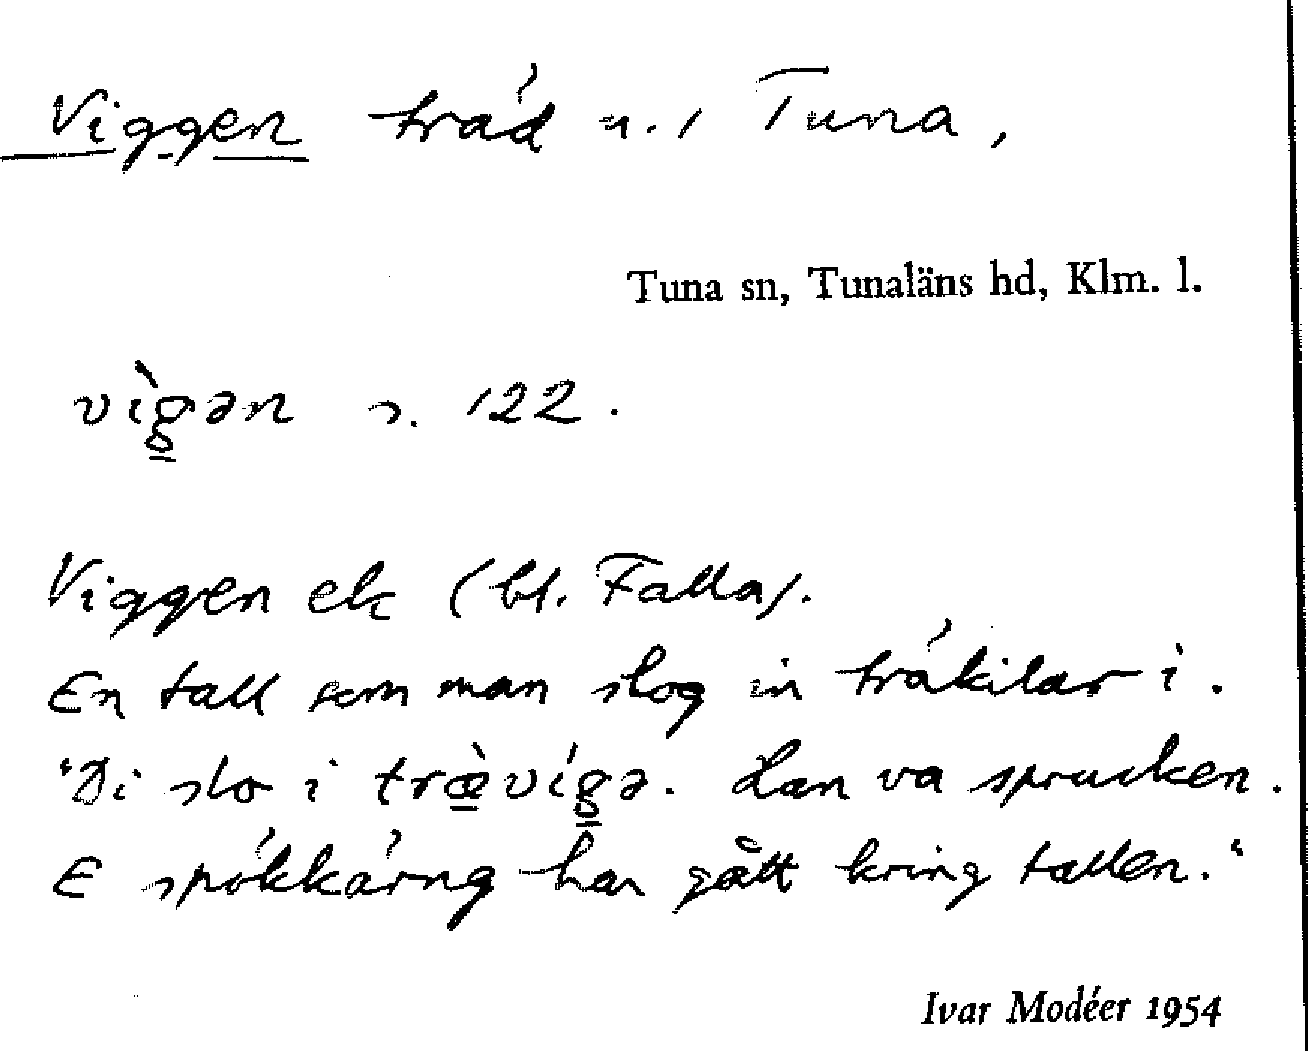 Viggen träd n. i Tuna,
Tuna sn, Tunaläns hd, Klm. l.
vìgən s. 122.
Viggen ek (bl. Falla).
En tall som man slog in träkilar i.
"Di slo i træ̀vígə. Han va sprucken.
E spökkärng har gått kring tallen."
Ivar Modéer 1954